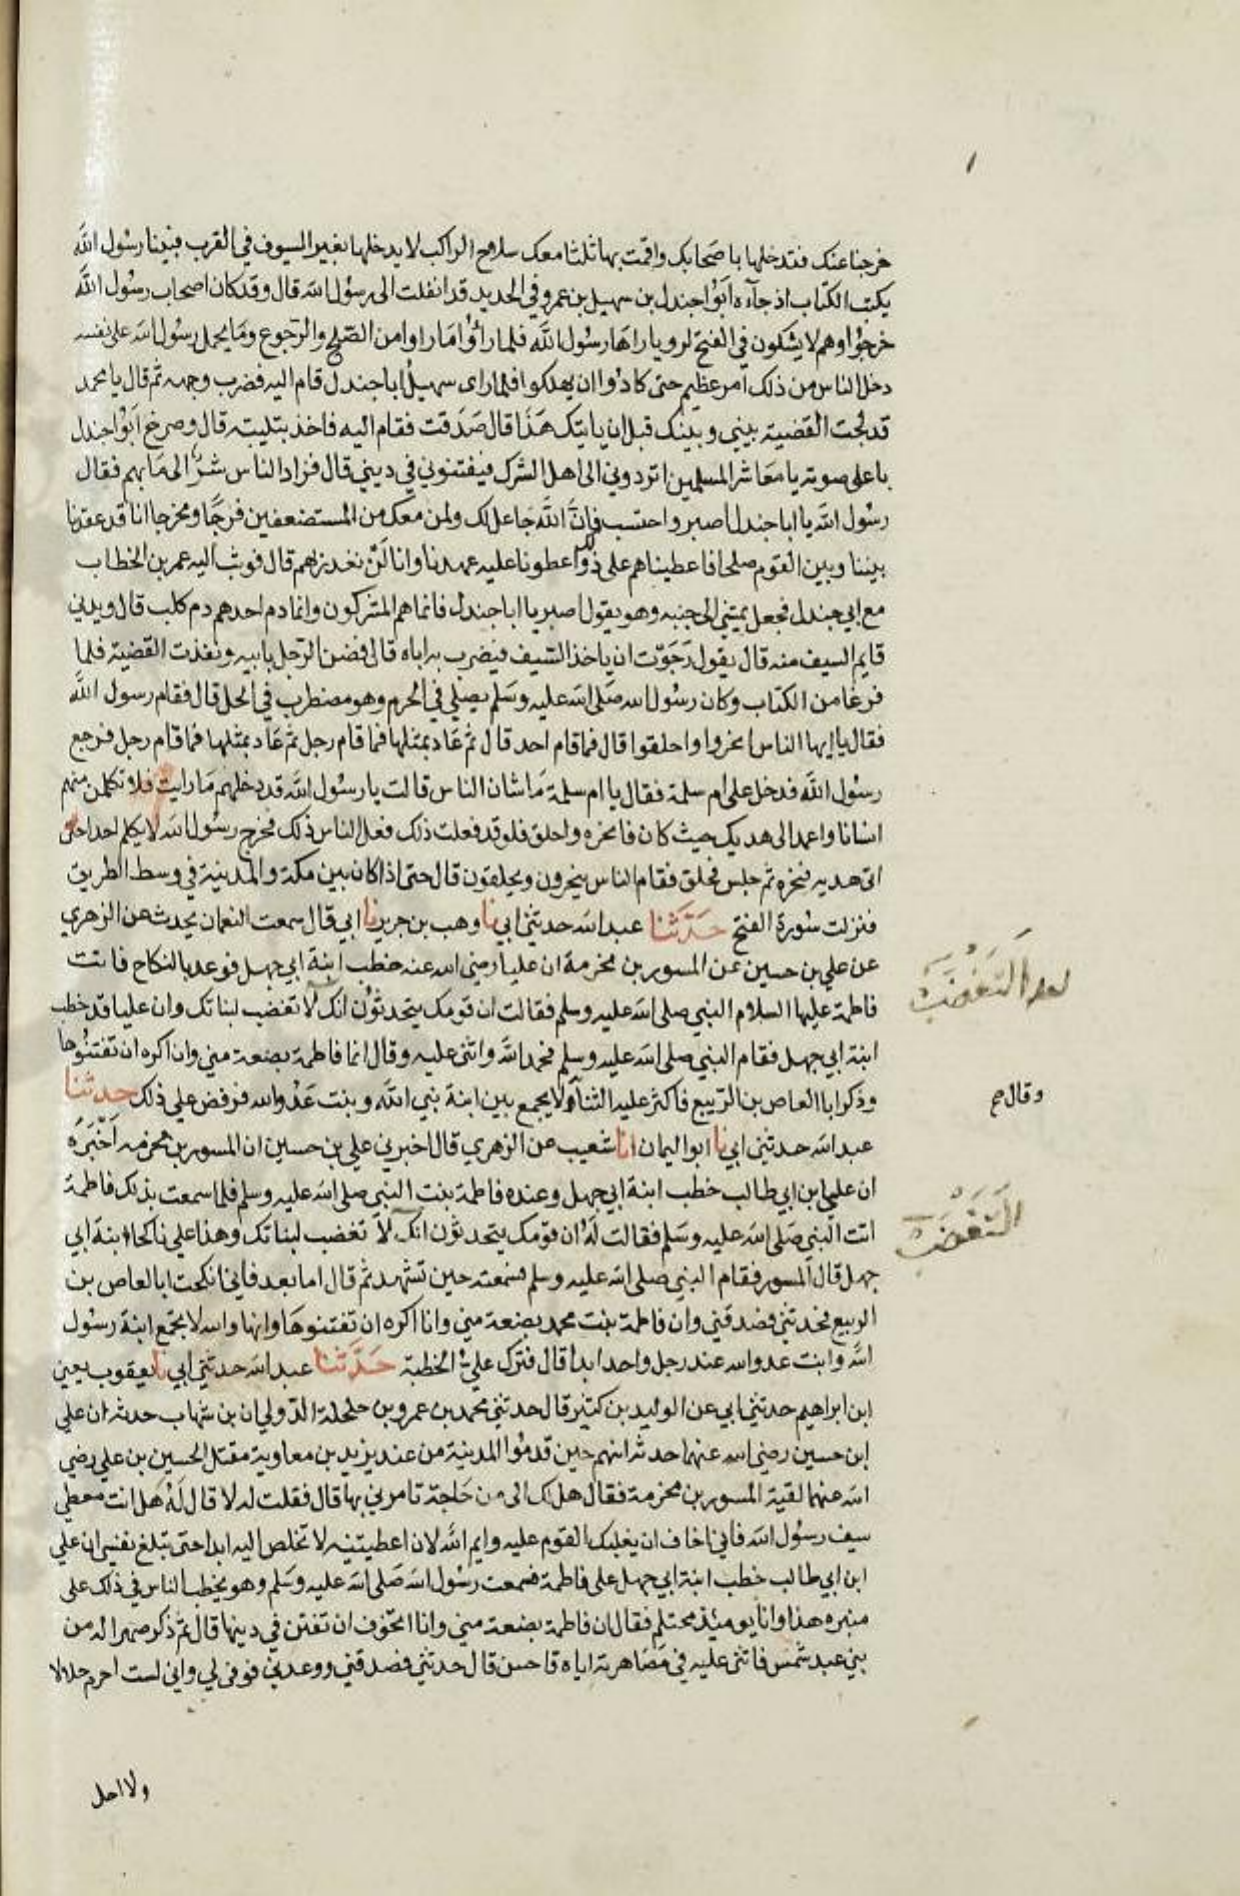 خرجنا عنك فتدخلها باصحابك واقمت بها ثلثا معك سلاح الراكب لا يدخلها بغير السيوف في القرب فبينا رسول الله
يكتب الكتاب اذ جآءه ابوا جندل بن سهيل بن عمرو في الحديد قد انفلت الى رسول الله قال وقد كان اصحاب رسول الله
خرجوا وهم لا يشكون في الفتح لرويا راها رسول الله فلما رأوا ما راوا من الصلح والرجوع وما يحمل رسول الله على نفسه
دخل الناس من ذلك امر عظيم حتى كادوا ان يهلكوا فلما راى سهيل ابا جندل قام اليه فضرب وجهه ثم قال يا محمد
قد لجت القضية بيني وبينك قبل ان ياتيك هذا قال صدقت فقام اليه فاخذ بتلبيته قال وصرخ ابوا جندل
باعلى صوته يا معاشر المسلمين اتردوني الى اهل الشرك فيفتنوني في ديني قال فزاد الناس شرا الى ما بهم فقال
رسول الله يا ابا جندل اصبر واحتسب فان الله جاعل لك ولمن معك من المستضعفين فرجا ومخرجا انا قد عقدنا
بيننا وبين القوم صلحا فاعطيناهم على ذلك واعطونا عليه عهدنا وانا لن نغدر بهم قال فوثب اليه عمر بن الخطاب
مع ابي جندل فجعل يمشي الى جنبه وهو يقول اصبر يا ابا جندل فانما هم المشركون وانما دم احدهم دم كلب قال ويدني
قايم السيف منه قال يقول رجوت ان ياخذ السيف فيضرب به اباه قال فضن الرجل بابيه ونفذت القضية فلما
فرغا من الكتاب وكان رسول الله صلى الله عليه وسلم يصلي في الحرم وهو مضطرب في الحل قال فقام رسول الله
فقال يا ايها الناس انحروا واحلقوا قال فما قام احد قال ثم عاد بمثلها فما قام رجل ثم عاد بمثلها فما قام رجل فرجع
رسول الله فدخل على ام سلمة فقال يا ام سلمة ما شان الناس قالت يا رسول الله قد دخلهم ما رايت فلا تكلمن منهم
انسانا واعمد الى هديك حيث كان فانحره واحلق فلو قد فعلت ذلك فعل الناس ذلك فخرج رسول الله لا يكلم احدا حتى
اتى هديه فنحره ثم جلس فحلق فقام الناس ينحرون ويحلقون قال حتى اذا كان بين مكة والمدينة في وسط الطريق
فنزلت سورة الفتح حدثنا عبد الله حدثني ابي نا وهب بن جرير نا ابي قال سمعت النعمان يحدث عن الزهري
عن علي بن حسين عن المسور بن مخرمة ان عليا رضي الله عنه خطب ابنة ابي جهل فوعد بالنكاح فاتت
فاطمة عليها السلام النبي صلى الله عليه وسلم فقالت ان قومك يتحدثون انك لا تغضب لبناتك وان عليا قد خطب
ابنة ابي جهل فقام النبي صلى الله عليه وسلم فحمد الله واثنى عليه وقال انما فاطمة بضعة مني وان اكره ان تفتنوها
وذكر ابا العاص بن الربيع فاكثر عليه الثناء ولا يجمع بين ابنة نبي الله وبنت عدو الله فرفض علي ذلك حدثنا
وقال ح
عبد الله حدثني ابي نا ابو اليمان انا شعيب عن الزهري قال اخبرني علي بن حسين ان المسور بن مخرمه اخبره
ان علي ابن ابي طالب خطب ابنة ابي جهل وعنده فاطمة بنت النبي صلى الله عليه وسلم فلما سمعت بذلك فاطمة
اتت النبي صلى الله عليه وسلم فقالت له ان قومك يتحدثون انك لا تغضب لبناتك وهذا علي ناكحا ابنة ابي
جهل قال المسور فقام النبي صلى الله عليه وسلم فسمعته حين تشهد ثم قال اما بعد فاني انكحت ابا العاص بن
الربيع فحدثني فصدقني وان فاطمة بنت محمد بضعة مني وانا اكره ان تفتنوها وانها والله لا يجتمع ابنة رسول
الله وابنت عدو الله عند رجل واحد ابدا قال فترك علي الخطبة حدثنا عبد الله حدثني ابي نا يعقوب يعني
ابن ابراهيم حدثني ابي عن الوليد بن كثير قال حدثني محمد بن عمرو بن حلحلة الدولي ان بن شهاب حدثه ان علي
ابن حسين رضي الله عنهما حدثه انهم حين قدموا المدينة من عند يزيد بن معاوية مقتل الحسين بن علي رضي
الله عنهما لقيه المسور بن مخرمة فقال هل لك الي من حاجة تامرني بها قال فقلت له لا قال له هل انت معطي
سيف رسول الله فاني اخاف ان يغلبك القوم عليه وايم الله لان اعطيتنيه لا تخلص اليه ابدا حتى تبلغ نفسي ان علي
ابن ابي طالب خطب ابنة ابي جهل على فاطمة فسمعت رسول الله صلى الله عليه وسلم وهو يخطب الناس في ذلك على
منبره هذا وانا يومئذ محتلم فقال ان فاطمة بضعة مني وانا اتخوف ان تفتن في دينها قال ثم ذكر صهرا له من
بني عبد شمس فاثنى عليه في مصاهرته اياه فاحسن قال حدثني فصدقني ووعدني فوفى لي واني لست احرم حلالا
ولا احل